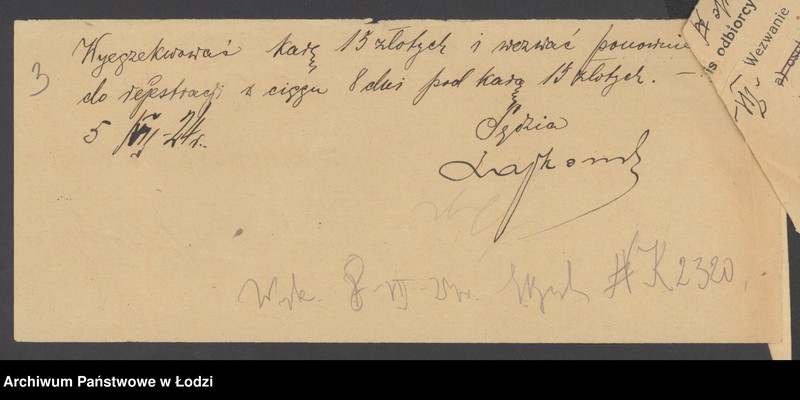 3
Wyegzekwować karę 15 złotych i wezwać ponownie
do rejestracji w ciągu 8 dni pod karą 15 złotych. —
5 VII-24 r.
Sędzia
Wyk. 8-VII-24 r. # K 2320,
is odbiorcy
Wezwanie
Archiwum Państwowe w Łodzi